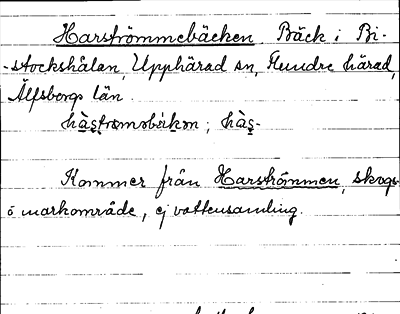 Harströmmebäcken. Bäck i Bi-
-stockshålan, Upphärad sn, Flundre härad,
Älfsborgs län.
Kommer från Harströmmen, skogs-
o markområde, ej vattensamling.